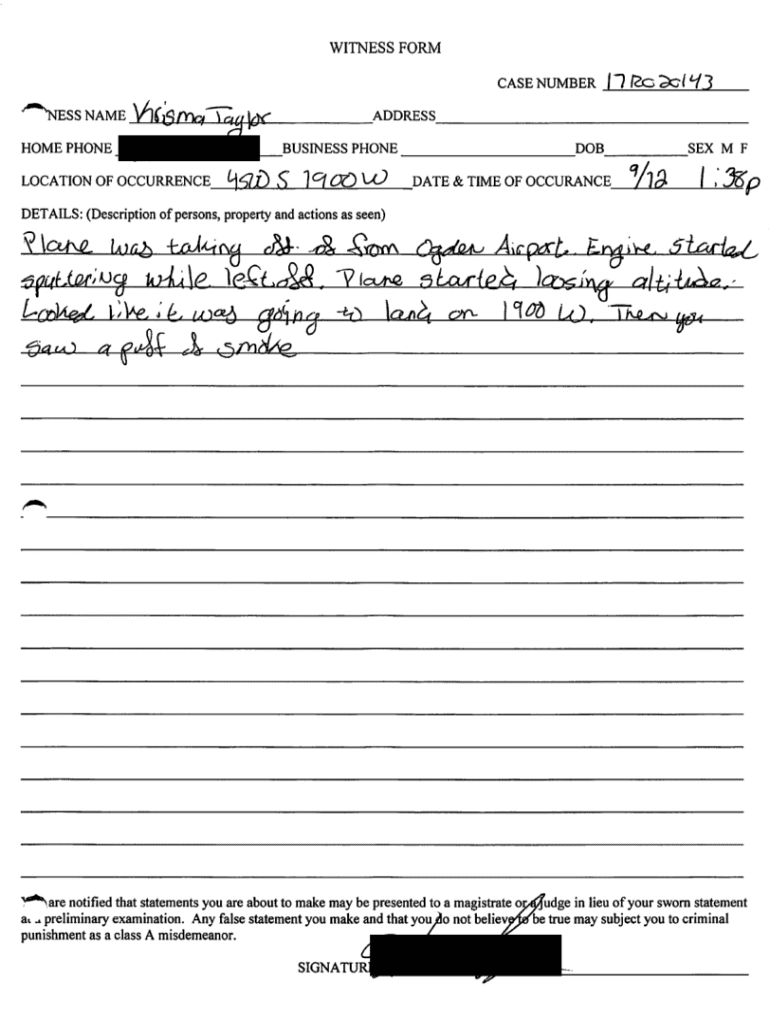 WITNESS FORM
CASE NUMBER 17RO20143
NESS NAME Krisma Taylor ADDRESS
HOME PHONE BUSINESS PHONE DOB SEX M F
LOCATION OF OCCURRENCE S 1900 W DATE & TIME OF OCCURANCE 9/12 1:38p
DETAILS: (Description of persons, property and actions as seen)
Plane was taking off. of from Ogden Airport. Engine started
sputtering while left off. Plane started loosing altitude.
Looked like it was going to land on 1900 W. Then you
saw a puff of smoke
are notified that statements you are about to make may be presented to a magistrate or a judge in lieu of your sworn statement
preliminary examination. Any false statement you make and that you do not believe to be true may subject you to criminal
punishment as a class A misdemeanor.
SIGNATUR